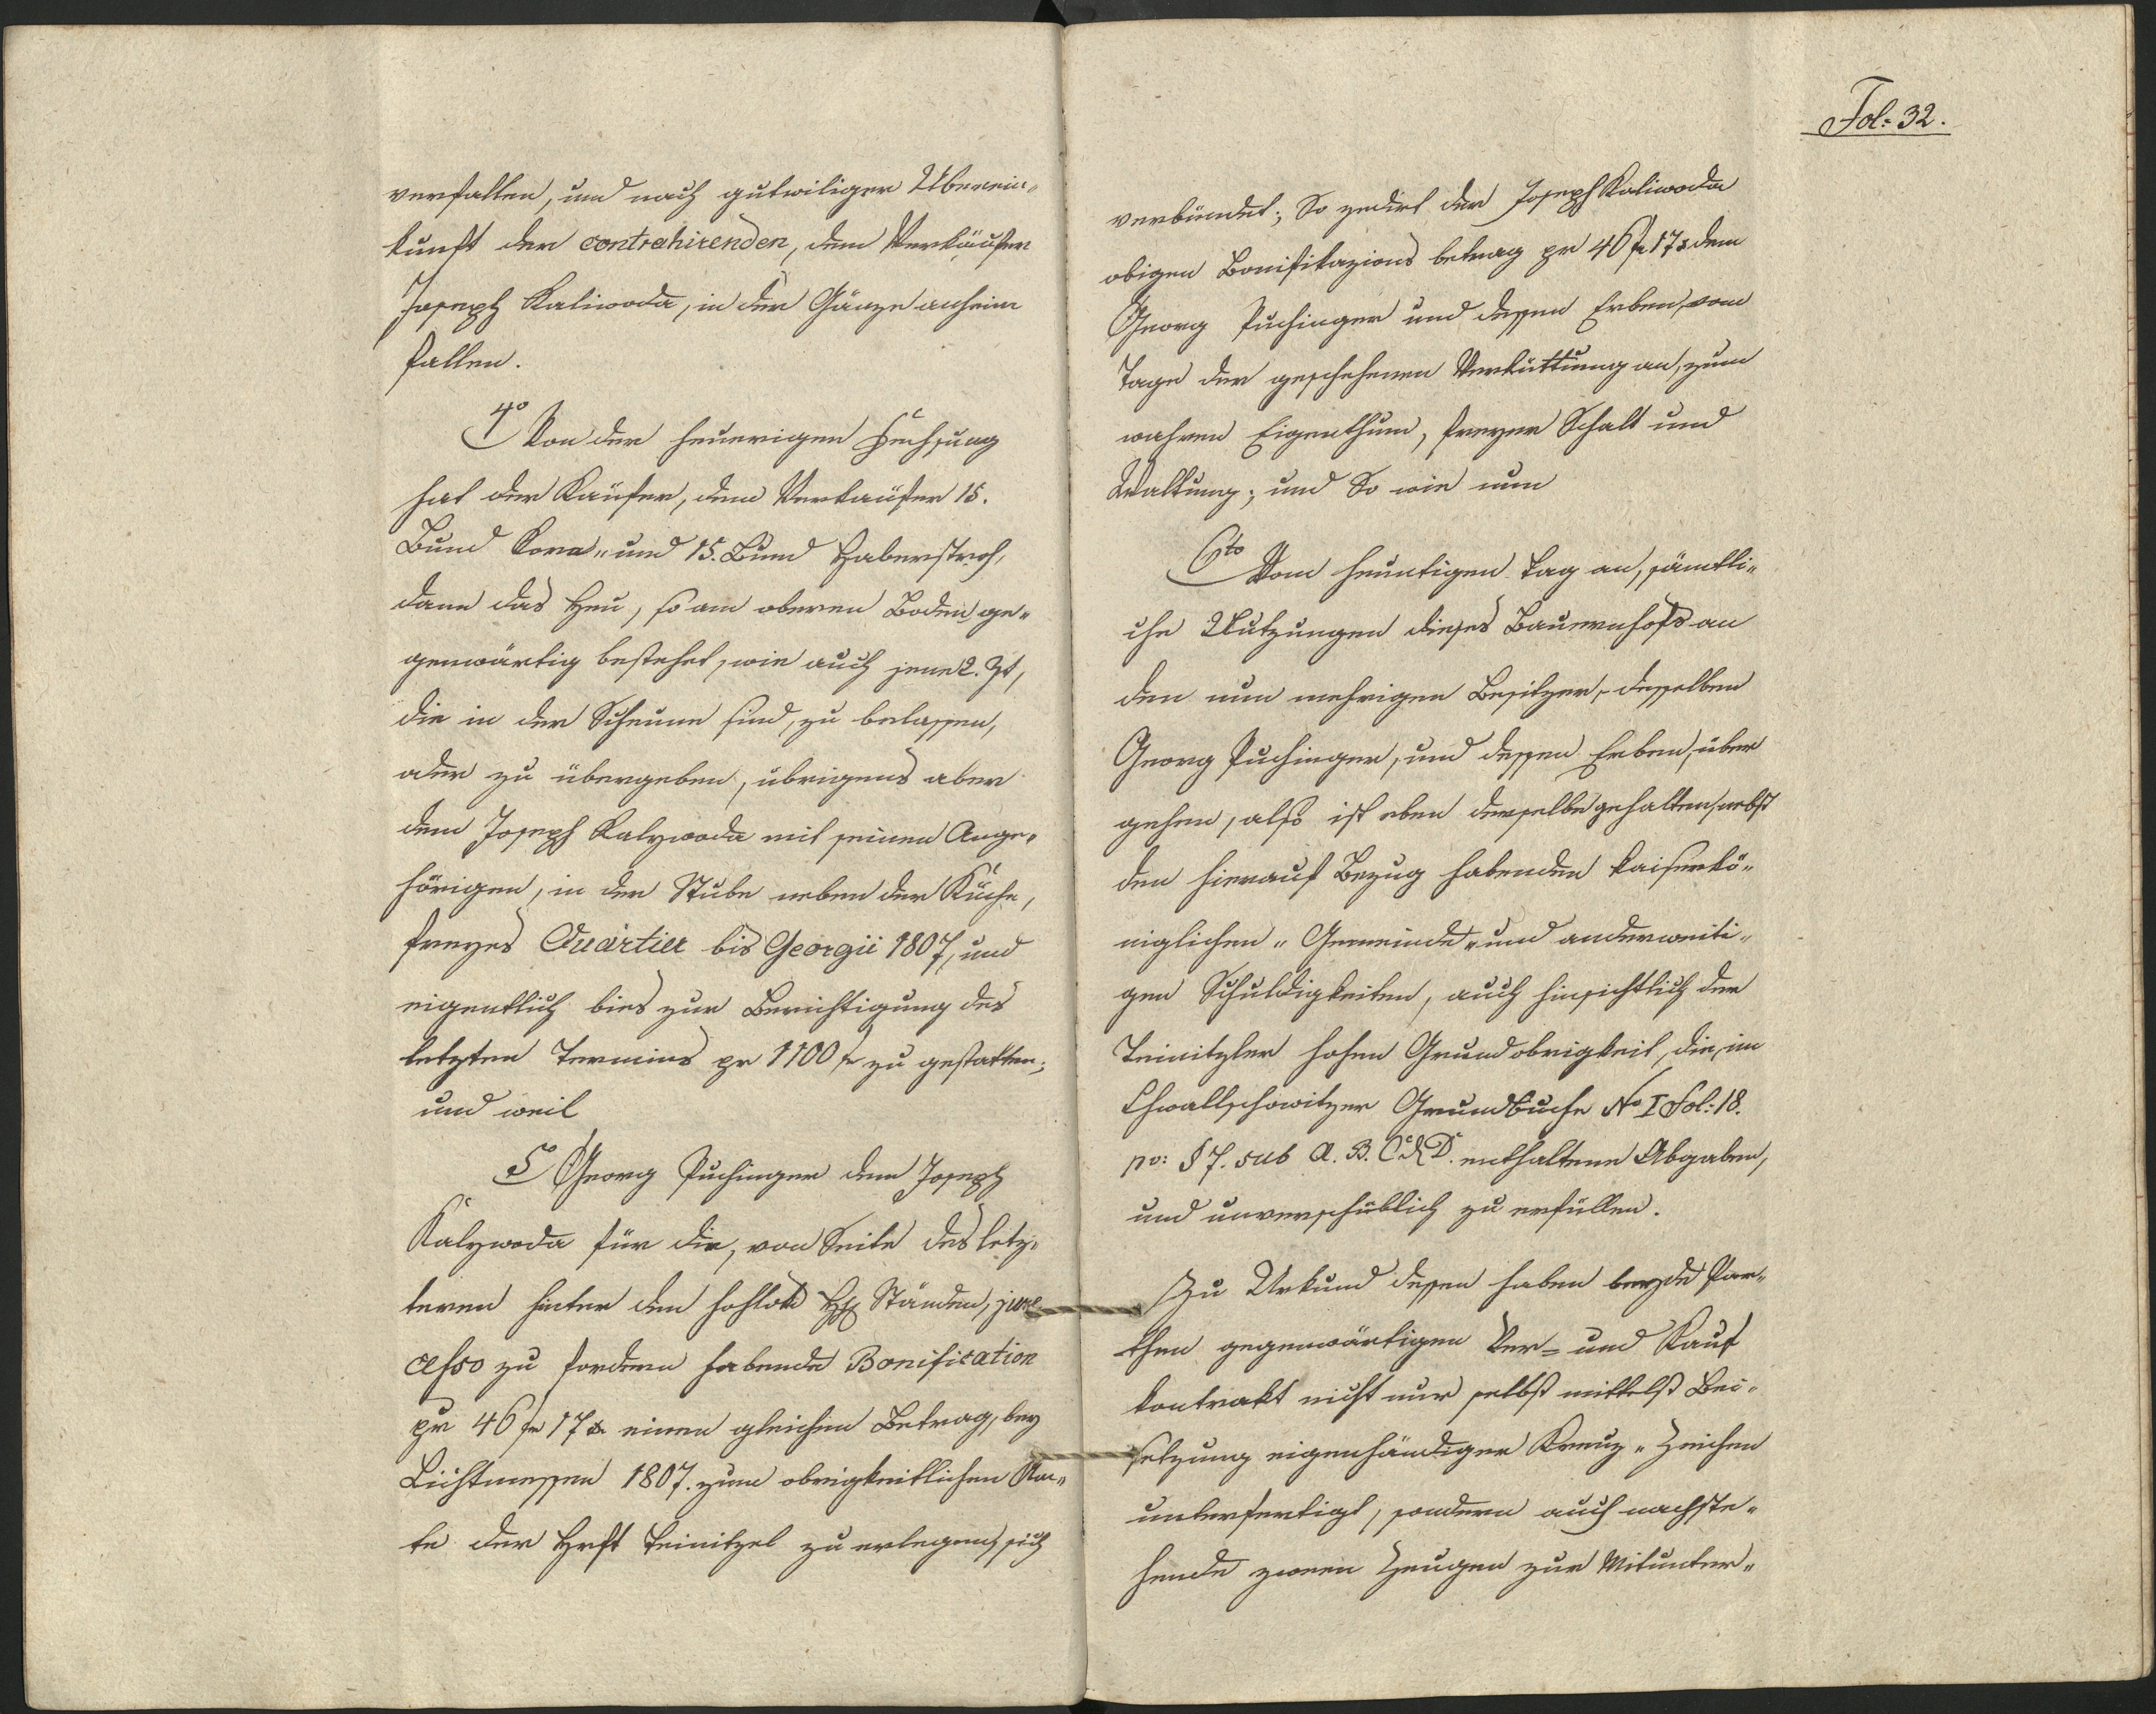 verfallen, und nach gutwiliger Überein„
kunft der contrahirenden, dem Verkäufer
Joseph Kaliwoda, in der Gänze anheim
fallen.
4o Von der heuerigen Fechsung
hat der Käufer, dem Verkäufer 15.
Bund Korn„ und 15. Bund Haberstroh,
dann das Heu, so am oberen Boden ge„
genwärtig bestehet, wie auch jene 2. Zt,
die in der Scheune sind, zu belassen,
oder zu übergeben, übrigens aber
dem Joseph Kalywoda mit seinen Ange„
hörigen, in der Stube neben der Küche,
freyes Quartier bis Georgii 1807, und
eigentlich bies zur Berichtigung des
letzten Termins pr 1100 f zu gestatten;
und weil
5o Georg Puchinger dem Joseph
Kalywoda für die, von Seite des letz„
teren hinter den hohlöbl HH Ständen, jure
cesso zu fordern habende Bonification
pr 46 f 17 x einen gleichen Betrag, bey
Lichtmessen 1807. zum obrigkeitlichen Am„
te der Hrft Teinitzel zu erlegen, sich
Fol: 32.
verbündet; So zedirt der Joseph Kaliwoda
obigen Bonifikazions betrag pr 46 f 17 x dem
Georg Puchinger und dessen Erben, vom
Tage der geschehenen Verküttung an, zum
wahren Eigenthum, freyer Schalt und
Waltung; und So wie nun
6to Vom heuntigen Tag an, sämtli„
che Nutzungen dieses Bauernhofs an
den nun mehrigen Besitzer, desselben
Georg Puchinger, und dessen Erben, über
gehen, also ist eben derselbe gehalten, nebst
den hierauf Bezug habenden kaiserkö„
niglichen„ Gemeinde„ und anderweiti„
gen Schuldigkeiten, auch hinsichtlich der
Teinitzler hohen Grundobrigkeit, die, im
Chwallschowitzer Grundbuche No I Fol: 18.
po: § 7. sub A. B. C. & D. enthaltene Abgaben,
und unverschüblich zu erfüllen.
Zu Urkund dessen haben beyde Par„
then gegenwärtigen Ver= und Kauf
kontrakt nicht nur selbst mittelst Bei„
setzung eigenhändiger Kreuz„ Zeichen
unterfertigt, sondern auch nachste„
hende zween Zeugen zur Mitunter„